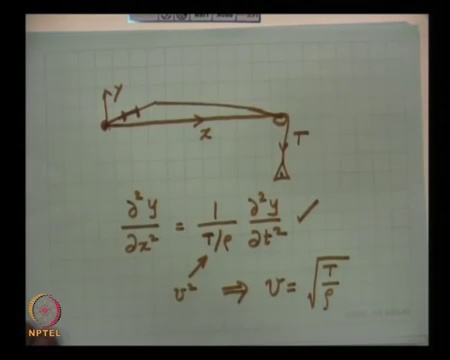 y
x
T
∂²y/∂x² = 1/(T/ρ) ∂²y/∂t² ✓
v² ⇒ v = √(T/ρ)
NPTEL